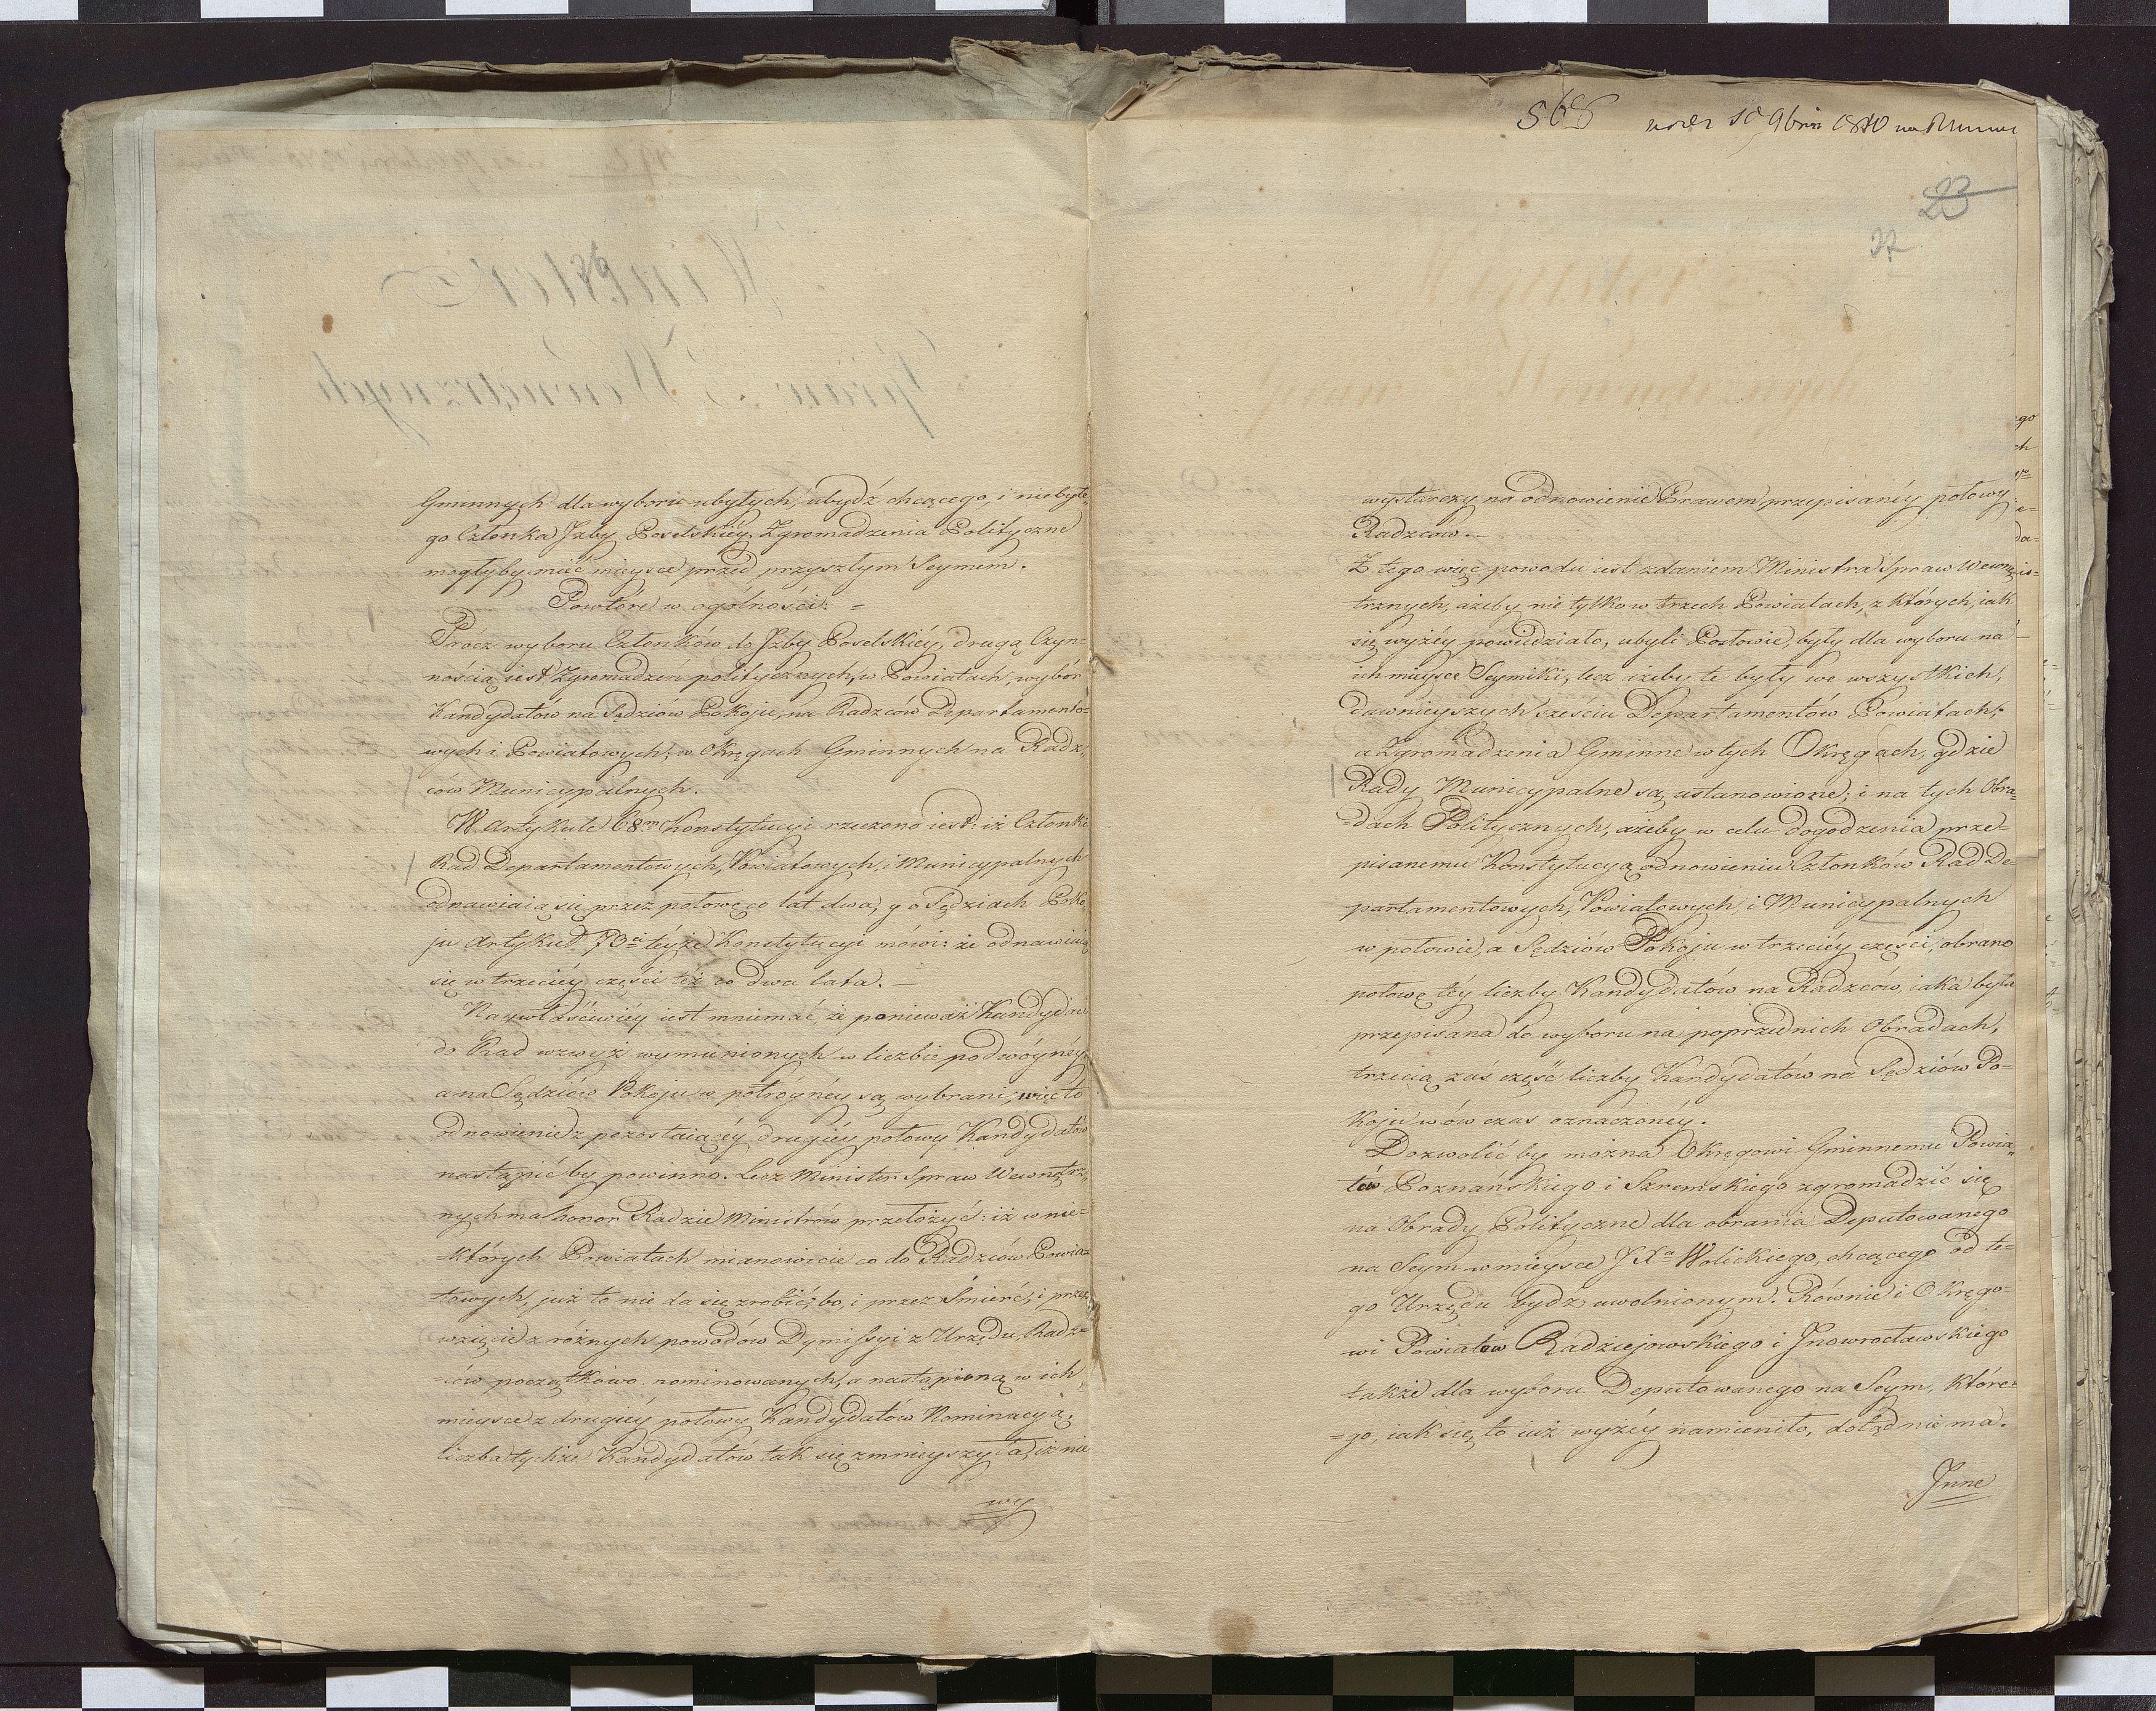 Gminnych dla wyboru ubyłych, ubydź chcącego, i niebyłe„
go Członka Jzby Poselskiéy, Zgromadzenia Polityczne
mogłyby mieć mieysce przed przyszłym Seymem.
Powtóre w ogólności: =
Prócz wyboru Członków do Jzby Poselskiéy, drugą Czyn=
nością iest Zgromadzeń politycznych, w Powiatach, wybór
Kandydatów na Sędziów Pokoju, na Radzców Departamento=
wych i Powiatowych; w Okręgach Gminnych na Radz„
ców Municypalnych.
W Artykule 68m Konstytucyi rzeczono iest: iż Członki
Rad Departamentowych, Powiatowych, i Municypalnych
odnawiaią się przez połowę co lat dwa, y o Sędziach Poko„
ju Artykuł 73ci teyże Konstytucyi mówi: że odnawiaią
się w trzeciéy części téż co dwa lata. —
Naywłaściwiéy iest mniemać, że ponieważ Kandydaci
do Rad wzwyż wymienionych w liczbie podwóynéy
a na Sędziów Pokoju w potróynéy są wybrani; więc to
odnowienie z pozostaiącéy drugiéy połowy Kandydatów
nastąpić by powinno. Lecz Minister Spraw Wewnętrz„
nych ma honor Radzie Ministrów przełożyć: iż w nie=
=których Powiatach mianowicie co do Radzców Powia=
towych, już to nie da się zrobić, bo i przez Smierć, i przez
wzięcie z różnych powodów Dymissyi z Urzędu, Radz=
=ców początkowo nominowanych, a nastąpioną w ich
mieysce z drugiéy połowy Kandydatów Nominacyą,
liczba tychże Kandydatów tak się zmnieyszyła, iż nie
wy
568 9bris 1810 na
23
27
wystarczy na odnowienie Prawem przepisanéy połowy
Radzców. —
Z tego więc powodu iest zdaniem Ministra Spraw Wewnę
trznych, ażeby nie tylko w trzech Powiatach, z których, iak
się wyżéy powiedziało, ubyli Posłowie, były dla wyboru na
ich mieysce Seymiki, lecz ażeby te były we wszystkich,
dawnieyszych sześciu Departamentów Powiatach,
a Zgromadzenia Gminne w tych Okręgach, gdzie
Rady Municypalne są ustanowione; i na tych Obra=
dach Politycznych, ażeby w celu dogodzenia prze=
pisanemu Konstytucyą odnowieniu Członków Rad De=
partamentowych, Powiatowych i Municypalnych
w połowie, a Sędziów Pokoju w trzeciéy części, obrano
połowę téy liczby Kandydatów na Radzców, iaka była
przepisana do wyboru na poprzednich Obradach,
trzecią zaś część liczby Kandydatów na Sędziów Po=
koju wówczas oznaczonéy.
Dozwolić by można Okręgowi Gminnemu Powia„
tów Poznańskiego i Szremskiego zgromadzić się
na Obrady Polityczne dla obrania Deputowanego
na Seym w mieysce J Xa Wolickiego, chcącego od te=
go Urzędu bydz uwolnionym. Równie i Okręgo=
wi Powiatow Radziejowskiego i Jnowrocławskiego
także dla wyboru Deputowanego na Seym, które=
=go, iak się to iuż wyżéy namieniło, dotąd nie ma.
Jnne